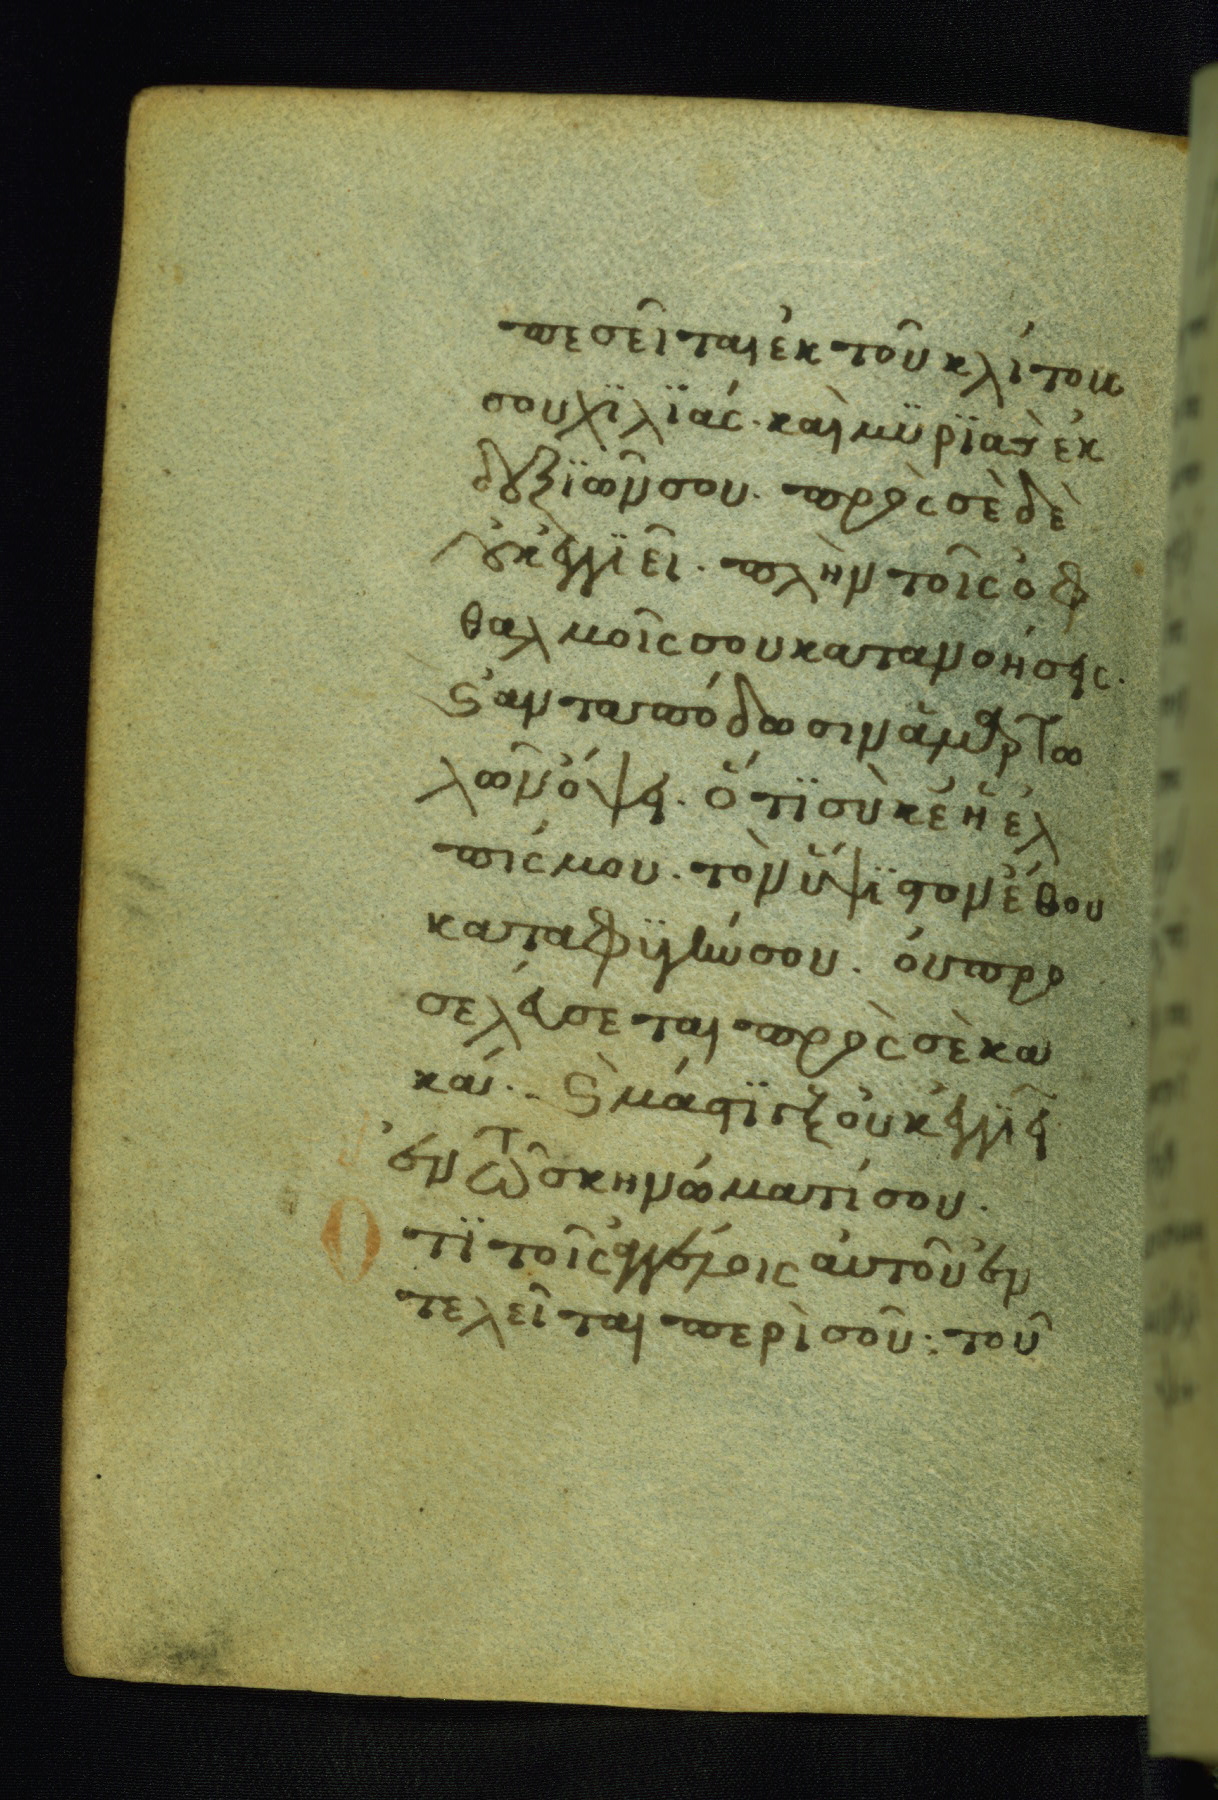 πεσεῖται ἐκ τοῦ κλίτου
σου χϊλϊάς· καὶ μϋρϊὰς ἐκ
δεξϊῶν σου· πρὸς σὲ δὲ
οὐκ ἐγγϊεῖ· πλὴν τοῖς ὀφ
θαλμοῖς σου κατανοήσεις·
ϛ ἀνταπόδωσιν ἁμαρτω
λῶν ὄψει· ὅτϊ σὺ κέ ἡ ἐλ
πίς μου· τὸν ὕψϊστον ἔθου
καταφϋγήν σου· οὐ προ
σελεύσεται πρὸς σὲ κα
κά· ϛ μάστϊξ οὐκ ἐγγϊεῖ
ἐν τῶ σκηνώματί σου·
Ὅτϊ τοῖς ἀγγέλοις αὐτοῦ ἐν
τελεῖται περὶ σοῦ· τοῦ